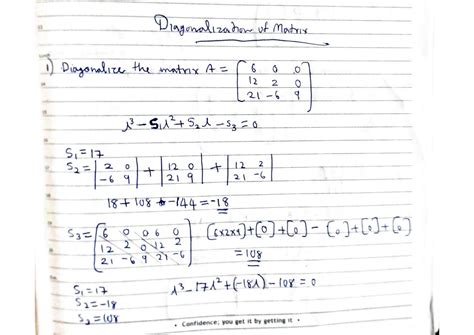 Diagonalization of Matrix
1) Diagonalize the matrix A = [6 0 0
12 2 0
21 -6 9]
λ³ - S₁λ² + S₂λ - S₃ = 0
S₁ = 17
S₂ = |2 0 -6 9| + |12 0 21 9| + |12 2 21 -6|
18 + 108 + -144 = -18
S₃ = [6 0 0 6 0
12 2 0 12 2
21 -6 9 21 -6] [6x2x9] + [0] + [0] - [0] + [0] + [0]
= 108
S₁ = 17
S₂ = -18
S₃ = 108
λ³ - 17λ² + (-18λ) - 108 = 0
• Confidence; you get it by getting it •